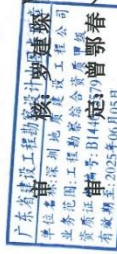 广东省建设工程勘察设计
单位名称:深圳地质建设工程公司
业务范围:工程勘察综合资质甲级
资质证书编号:B144
有效期至:2025年06月05日
审 核:罗建琛
审 定:曾鄂春